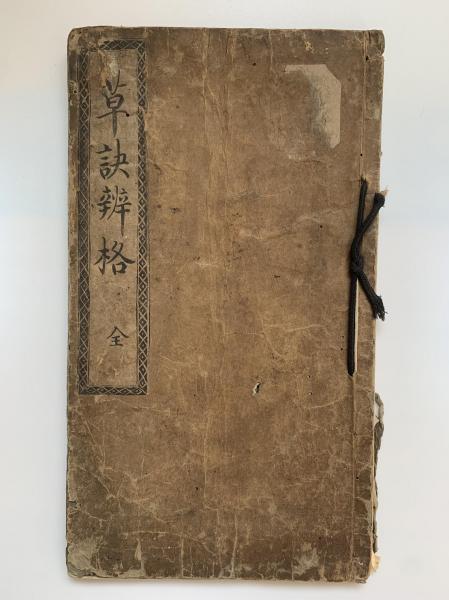 草訣辨格
全